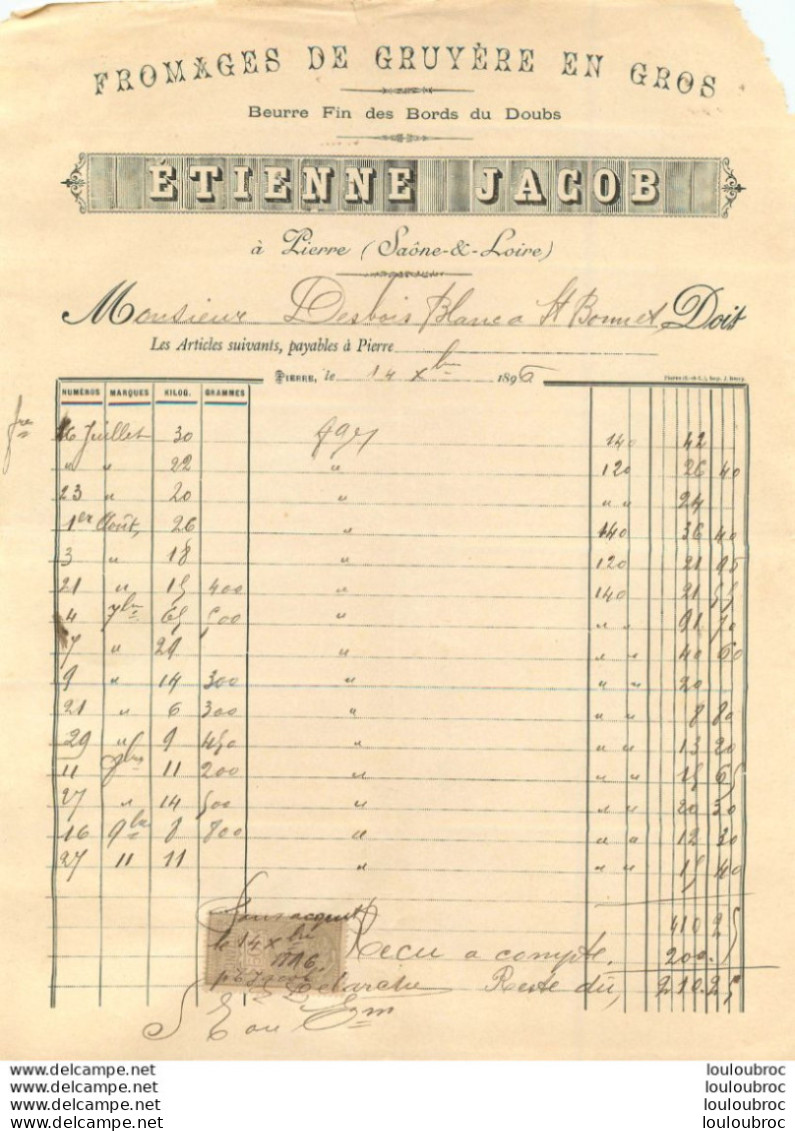 FROMAGES DE GRUYÈRE EN GROS
Beurre Fin des Bords du Doubs
ÉTIENNE JACOB
à Pierre (Saône-&-Loire)
Monsieur Desbois Blanc a St Bonnet, Doit
Les Articles suivants, payables à Pierre
PIERRE, le 14 Xbre 1896
NUMÉROS MARQUES KILOG. GRAMMES
16 Juillet 30 140 42
" " 22 " 120 26 40
23 " 20 " " " 24
1er Août, 26 " 140 36 40
3 " 18 " 120 21 95
21 " 15 400 " 140 21 55
4 7bre 65 500 " " " 91 70
7 " 29 " " " 40 60
9 " 14 300 " " " 20
21 " 6 300 " " " 8 80
29 " 9 450 " " " 13 20
11 8bre 11 200 " " " 15 65
27 " 14 500 " " " 20 30
16 9bre 8 800 " " " 12 30
27 11 11 " " " 15 40
410 25
Pour acquit
le 14 Xbre
1896
Recu a compte 200
Reste dû, 210.25
DELCAMPE.NET
DELCAMPE.NET
DELCAMPE.NET
DELCAMPE.NET
louloubroc
louloubroc
louloubroc
louloubroc